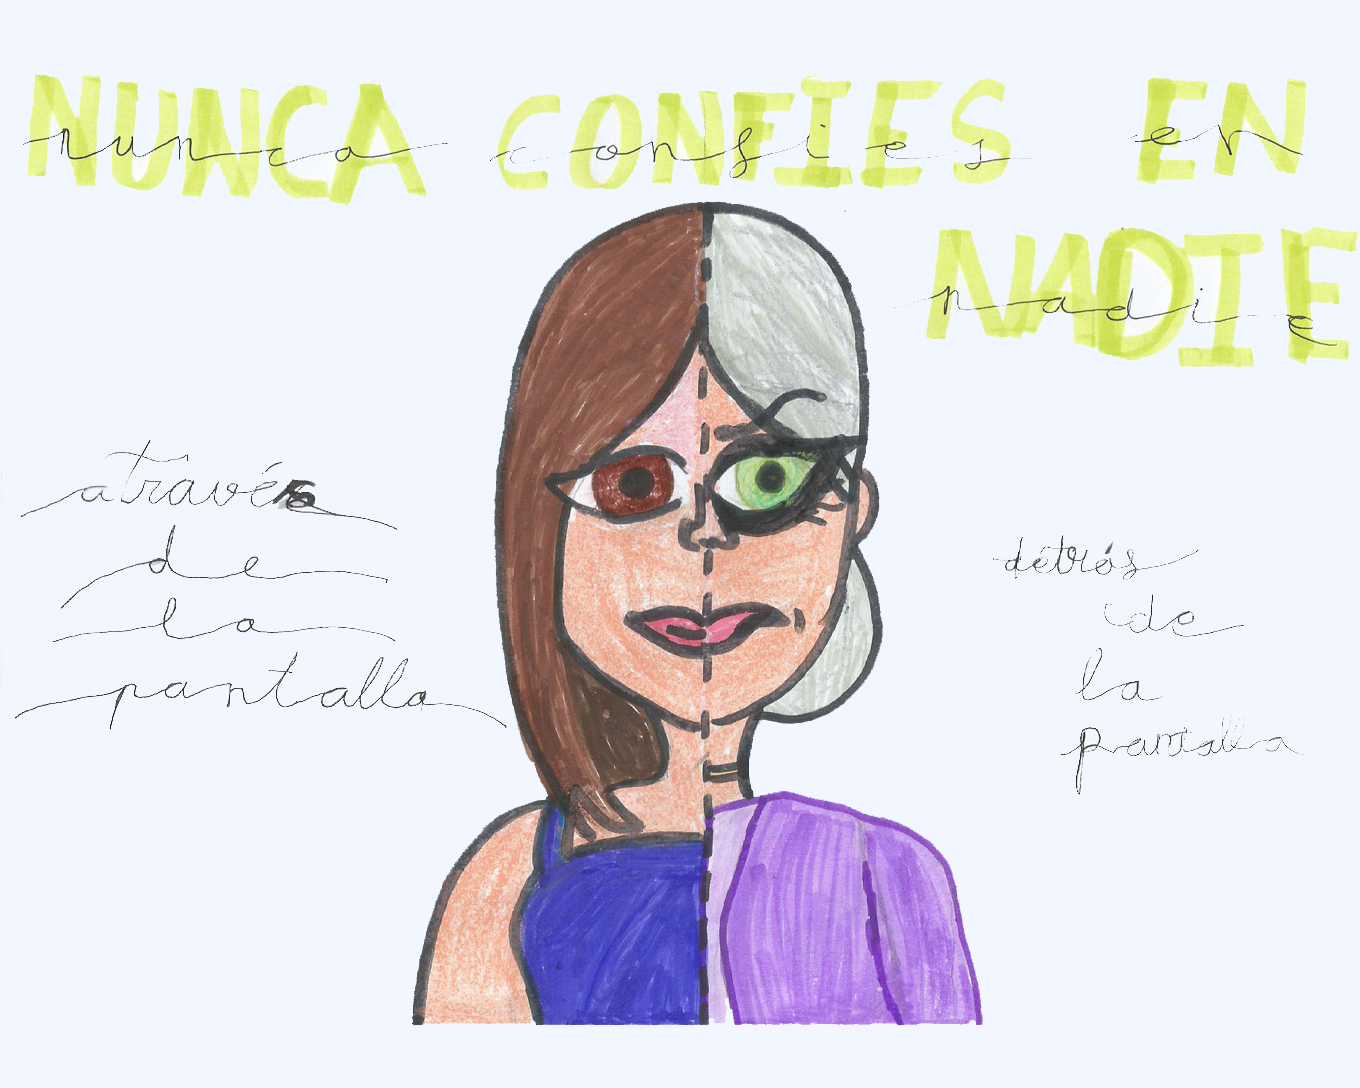 NUNCA CONFIES EN
nunca confies en
NADIE
nadie
através
de
la
pantalla
detrás
de
la
pantalla